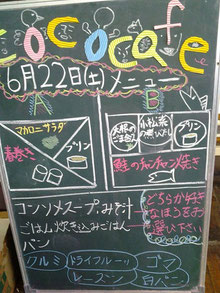 cococafe
6月22日(土)メニュー
A
B
マカロニサラダ
春巻き
プリン
大豆のごま煮
小松菜の煮びたし
プリン
鮭のチャンチャン焼き
コンソメスープ みそ汁
ごはん 炊き込みごはん
パン
どちらか好き
なほうをお
選び下さい
クルミ ドライフルーツ ゴマ
レーズン 白パン